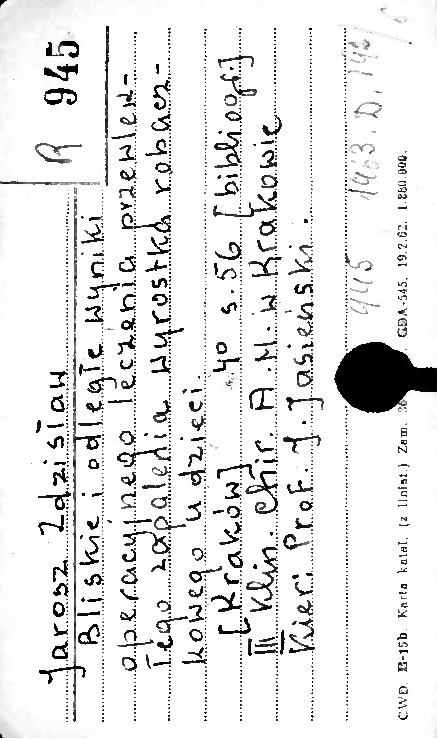 R 945
Jarosz Zdzisław
Bliskie i odległe wyniki
operacyjnego leczenia przewlek-
łego zapalenia wyrostka robacz-
kowego u dzieci.
[Kraków] 4° s. 56 [bibliogr.]
III Klin. Chir. A.M. w Krakowie
Kier: Prof. J. Jasieński.
945 1963.D.
CWD. B-15b. Karta katal. (z liniat.) Zam. GDA-545. 19.2.62. 1.880.000.